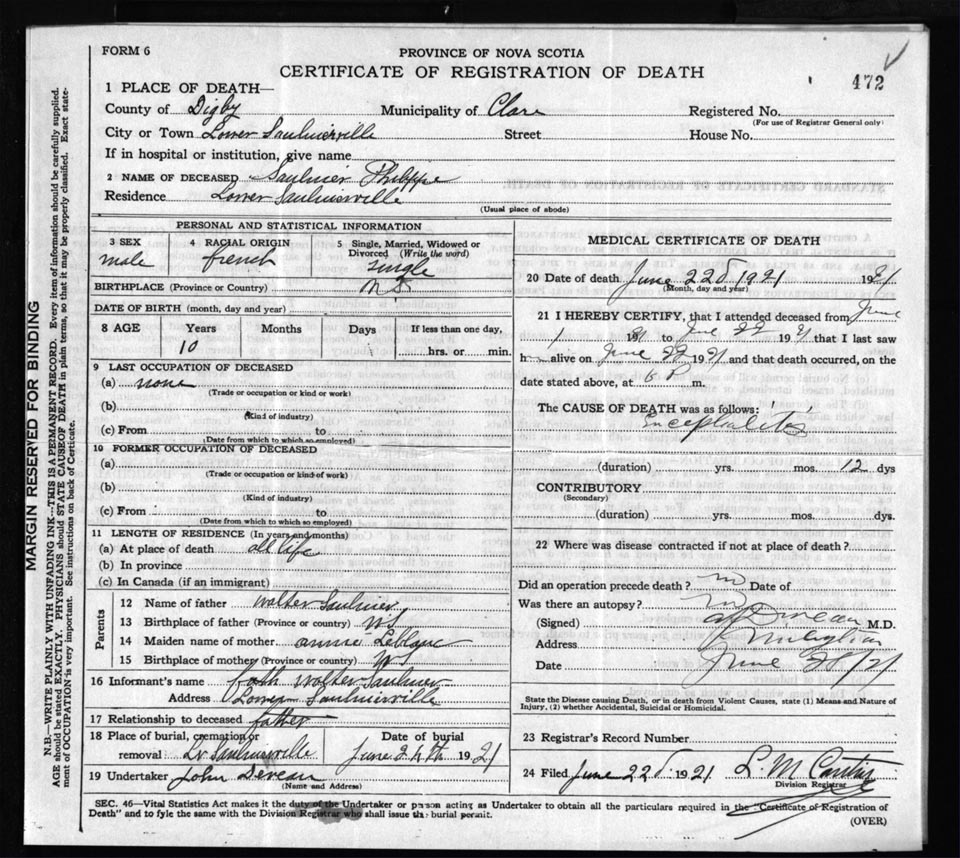 FORM 6
PROVINCE OF NOVA SCOTIA
CERTIFICATE OF REGISTRATION OF DEATH
472
1 PLACE OF DEATH—
County of Digby Municipality of Clare Registered No.
(For use of Registrar General only)
City or Town Lower Saulnierville Street House No.
If in hospital or institution, give name
2 NAME OF DECEASED Saulnier Philippe
Residence Lower Saulnierville
(Usual place of abode)
PERSONAL AND STATISTICAL INFORMATION
3 SEX 4 RACIAL ORIGIN 5 Single, Married, Widowed or Divorced (Write the word)
male french single
BIRTHPLACE (Province or Country) NS
DATE OF BIRTH (month, day and year)
8 AGE Years Months Days If less than one day,
10 hrs. or min.
9 LAST OCCUPATION OF DECEASED
(a) none
(Trade or occupation or kind or work)
(b)
(Kind of industry)
(c) From to
(Date from which to which so employed)
10 FORMER OCCUPATION OF DECEASED
(a)
(Trade or occupation or kind of work)
(b)
(Kind of industry)
(c) From to
(Date from which to which so employed)
11 LENGTH OF RESIDENCE (In years and months)
(a) At place of death all life
(b) In province
(c) In Canada (if an immigrant)
Parents
12 Name of father Walter Saulnier
13 Birthplace of father (Province or country) NS
14 Maiden name of mother annie Leblanc
15 Birthplace of mother (Province or country) NS
16 Informant's name Walter Saulnier
Address Lower Saulnierville
17 Relationship to deceased father
18 Place of burial, cremation or removal: Lr Saulnierville Date of burial June 24th 1921
19 Undertaker John Deveau
(Name and Address)
MEDICAL CERTIFICATE OF DEATH
20 Date of death June 22d 1921 1921
(Month, day and year)
21 I HEREBY CERTIFY, that I attended deceased from June
1 1921 to June 22 1921 that I last saw
h alive on June 22 1921 and that death occurred, on the
date stated above, at 6 P m.
The CAUSE OF DEATH was as follows:
Encephalitis
(duration) yrs. mos. 12 dys
CONTRIBUTORY
(Secondary)
(duration) yrs. mos. dys.
22 Where was disease contracted if not at place of death?
Did an operation precede death? no Date of
Was there an autopsy? no
(Signed) M.D.
Address
Date June 28/21
State the Disease causing Death, or in death from Violent Causes, state (1) Means and Nature of
Injury, (2) whether Accidental, Suicidal or Homicidal.
23 Registrar's Record Number
24 Filed June 22d 1921 L M
Division Registrar
SEC. 46—Vital Statistics Act makes it the duty of the Undertaker or person acting as Undertaker to obtain all the particulars required in the "Certificate of Registration of
Death" and to fyle the same with the Division Registrar who shall issue the burial permit.
(OVER)
MARGIN RESERVED FOR BINDING
N.B.—WRITE PLAINLY WITH UNFADING INK—THIS IS A PERMANENT RECORD. Every item of information should be carefully supplied.
AGE should be stated EXACTLY. PHYSICIANS should STATE CAUSE OF DEATH in plain terms, so that it may be properly classified. Exact state-
ment of OCCUPATION is very important. See instructions on back of Certificate.